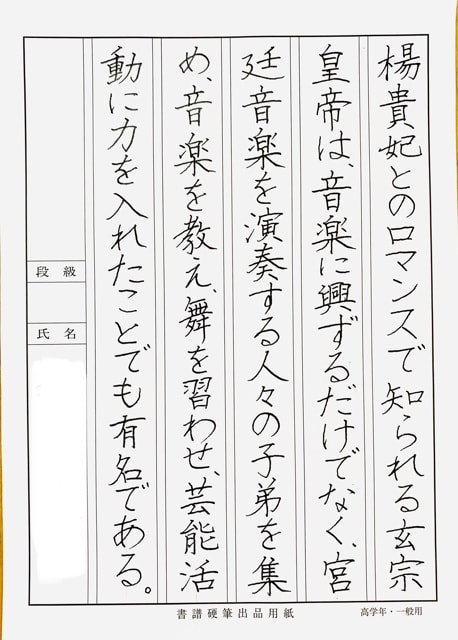 楊貴妃とのロマンスで知られる玄宗
皇帝は、音楽に興ずるだけでなく、宮
廷音楽を演奏する人々の子弟を集
め、音楽を教え、舞を習わせ、芸能活
動に力を入れたことでも有名である。
段級
氏名
書譜硬筆出品用紙
高学年・一般用